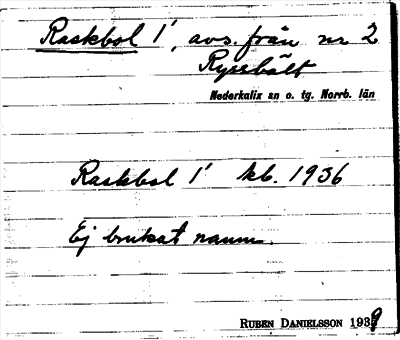 Raskbol 1¹, avs. från nr 2
Ryssbält
Nederkalix sn o. tg. Norrb. län
Raskbol 1¹ kb. 1936
Ej brukat namn.
RUBEN DANIELSSON 1939